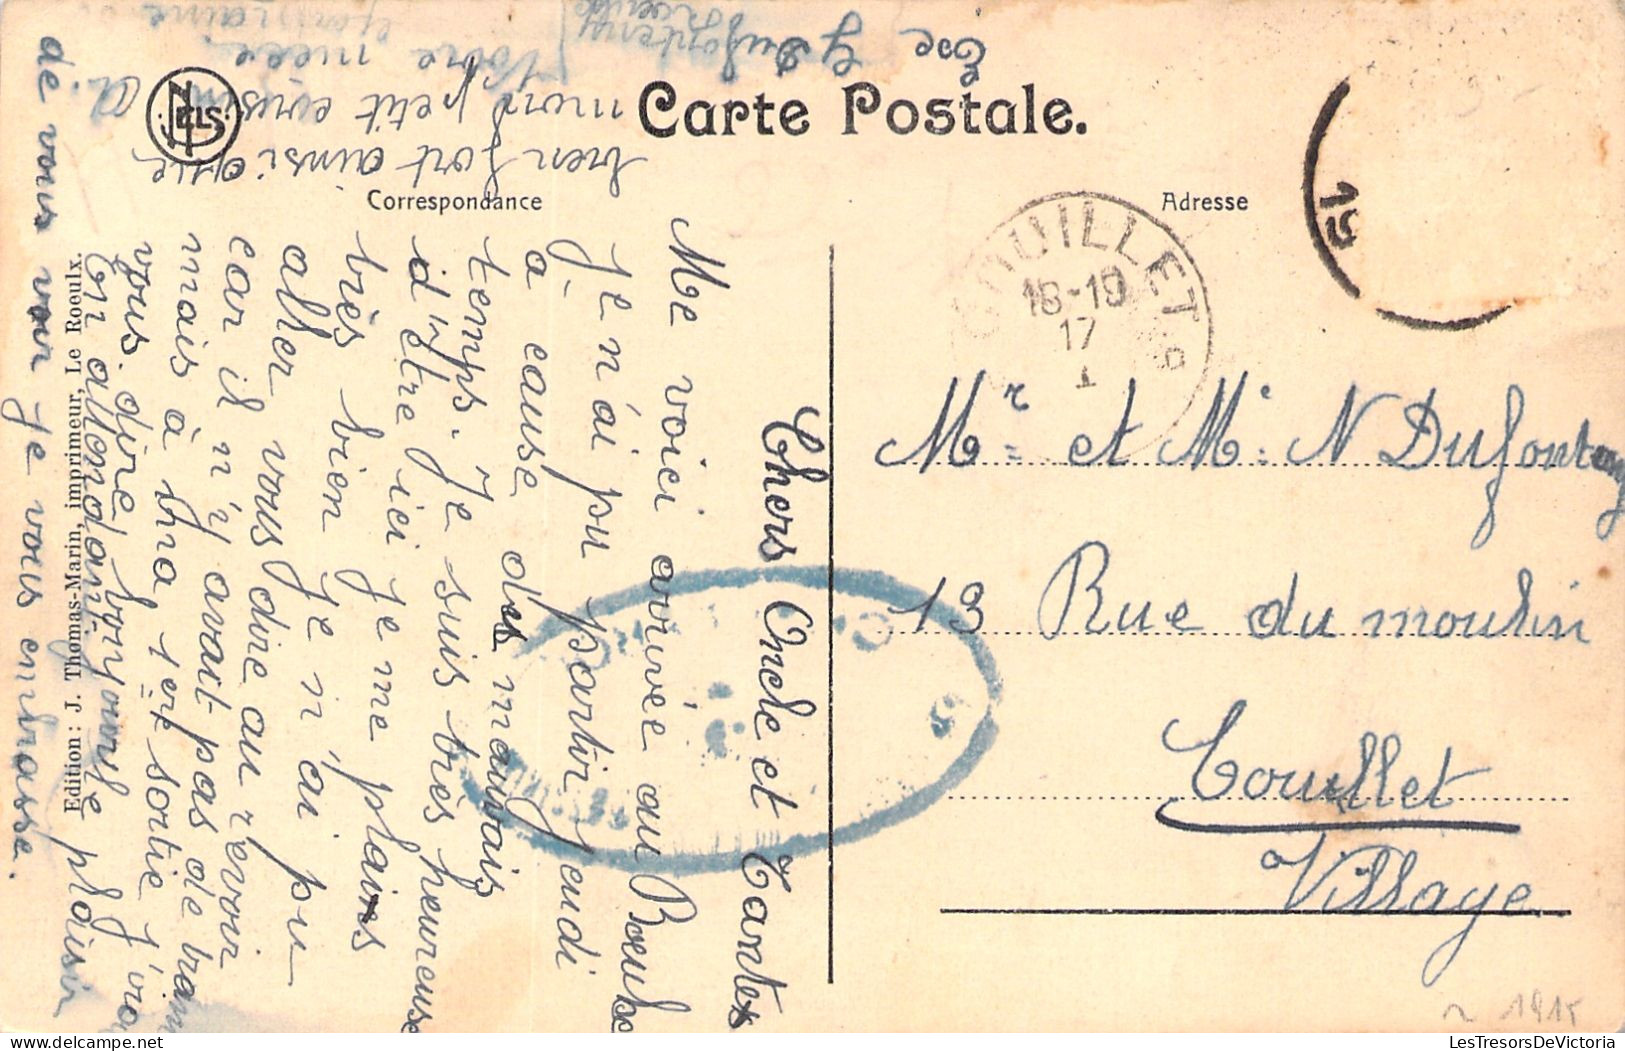 Carte Postale.
Correspondance
Adresse
NELS
Edition : J. Thomas-Marin, imprimeur, Le Rœulx.
COUILLET
18-19
17
1
19
Mr et Me N Dufonteny
19 Rue du moulin
Couillet
Village
Chers Oncle et Tantes
Me voici arrivée au Rœulx
je n'ai pu partir jeudi
à cause des mauvais
temps. Je suis très heureuse
d'être ici je me plains
très bien je n'ai pu
aller vous dire au revoir
car il n'y avait pas de tram
mais à ma 1ère sortie j'irai
vous dire bonjour
En attendant le plaisir
de vous voir je vous embrasse.
bien fort ainsi que
mon petit cousin
Votre nièce
G Dufonteny
1915
LesTresorsDeVictoria.com